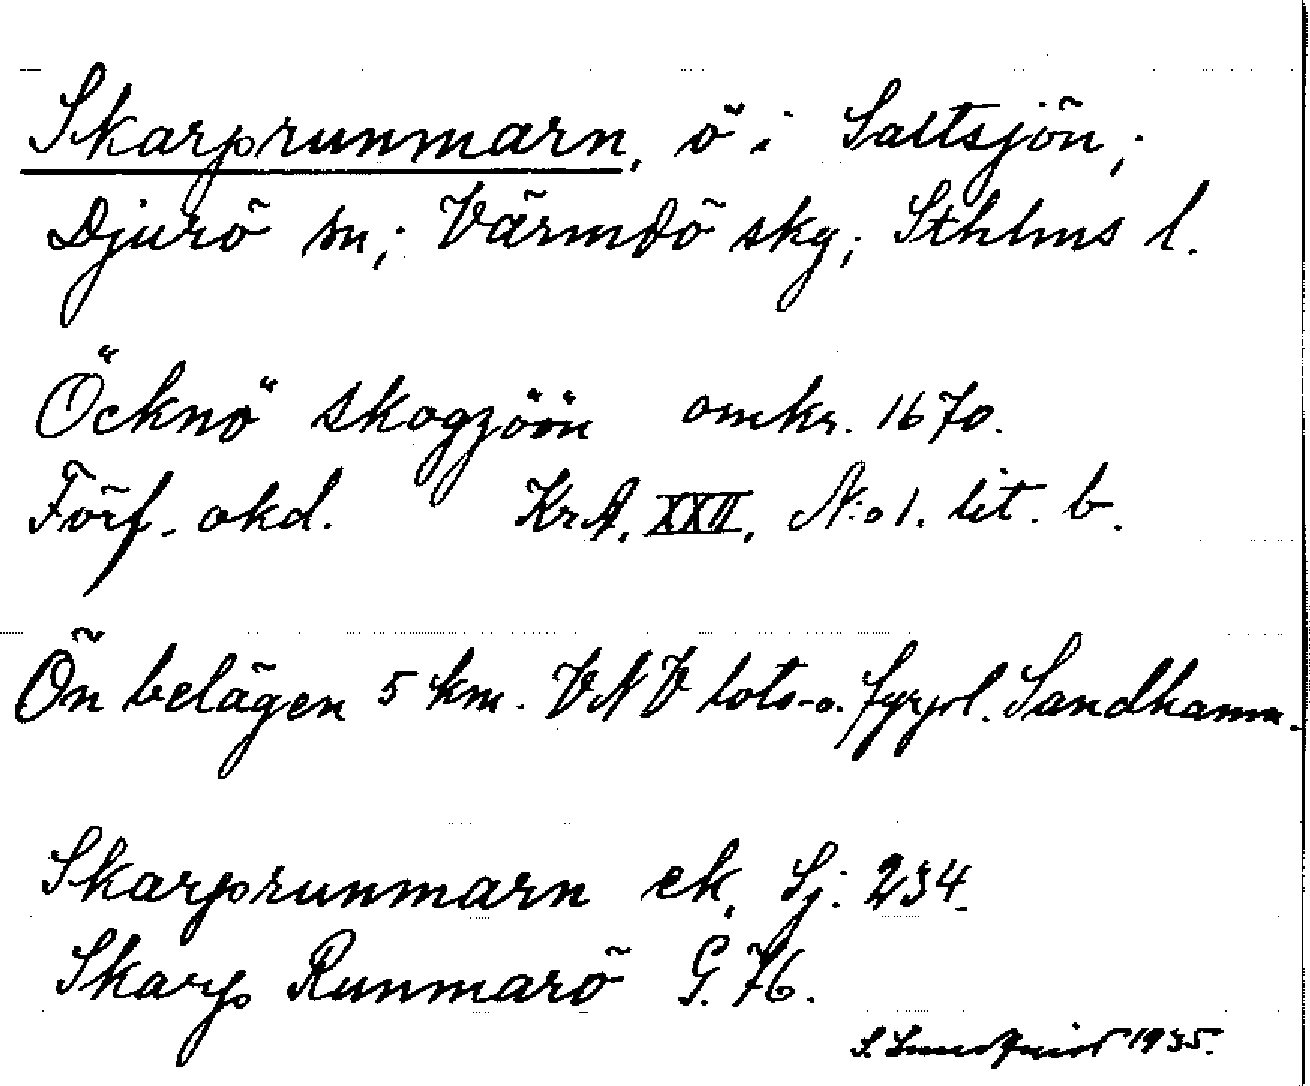 Skarprunmarn, ö i Saltsjön;
Djurö sn; Värmdö sky; Sthlms l.
Öcknö skogzöön omkr. 1670.
Förf. okd. KrA. XXII, N:o 1. lit. b.
Ön belägen 5 km. VNV lots- o. fyrpl. Sandhamn.
Skarprunmarn ek. Sj: 234.
Skarp Runmarö G. 76.
S. Lundqvist 1935.